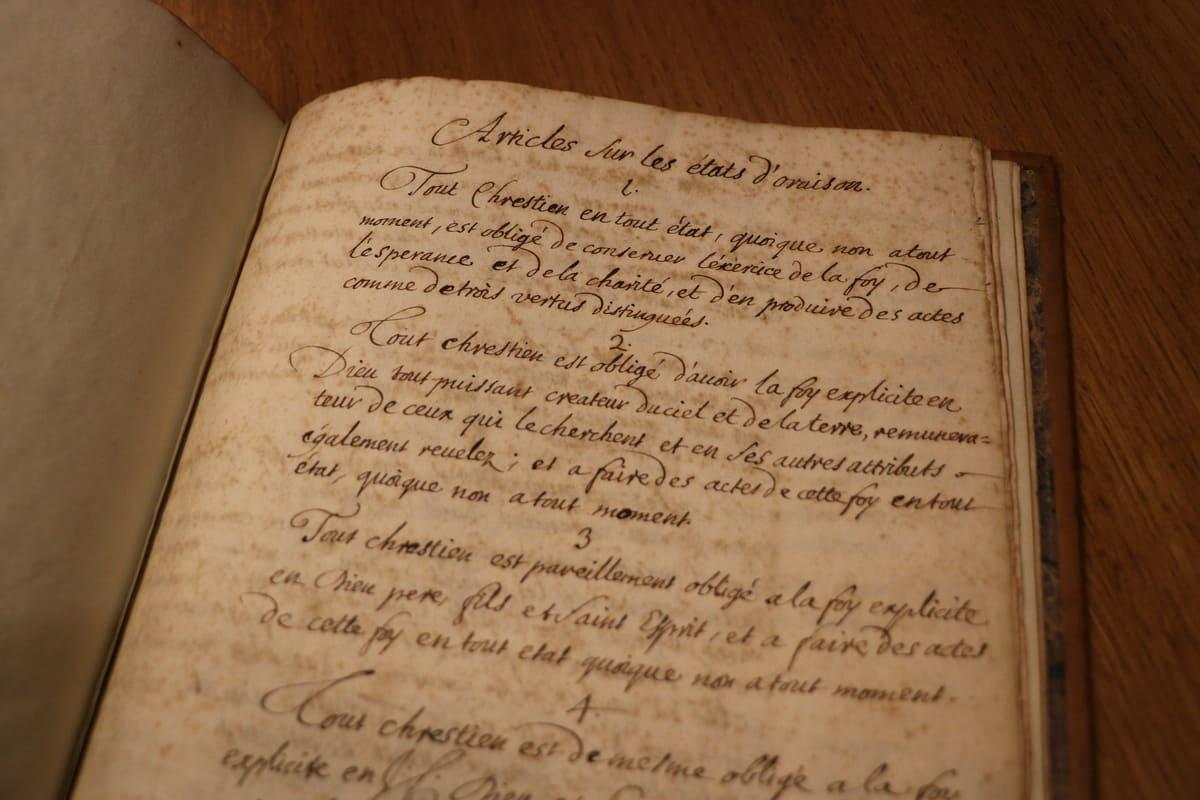 Articles sur les états d'oraison.
1.
Tout Chrestien en tout état, quoique non a tout
moment, est obligé de conserver l'éxercice de la foy, de
l'esperance et de la charité, et d'en produire des actes
comme de trois vertus distinguées.
2.
Tout chrestien est obligé d'avoir la foy explicite en
Dieu tout puissant createur du ciel et de la terre, remunera=
teur de ceux qui le cherchent et en ses autres attributs
également revelez; et a faire des actes de cette foy en tout
état, quoique non a tout moment.
3
Tout chrestien est pareillement obligé a la foy explicite
en Dieu pere, fils et saint Esprit, et a faire des actes
de cette foy en tout etat quoique non a tout moment.
4.
Tout chrestien est de mesme obligé a la foy
explicite en Dieu